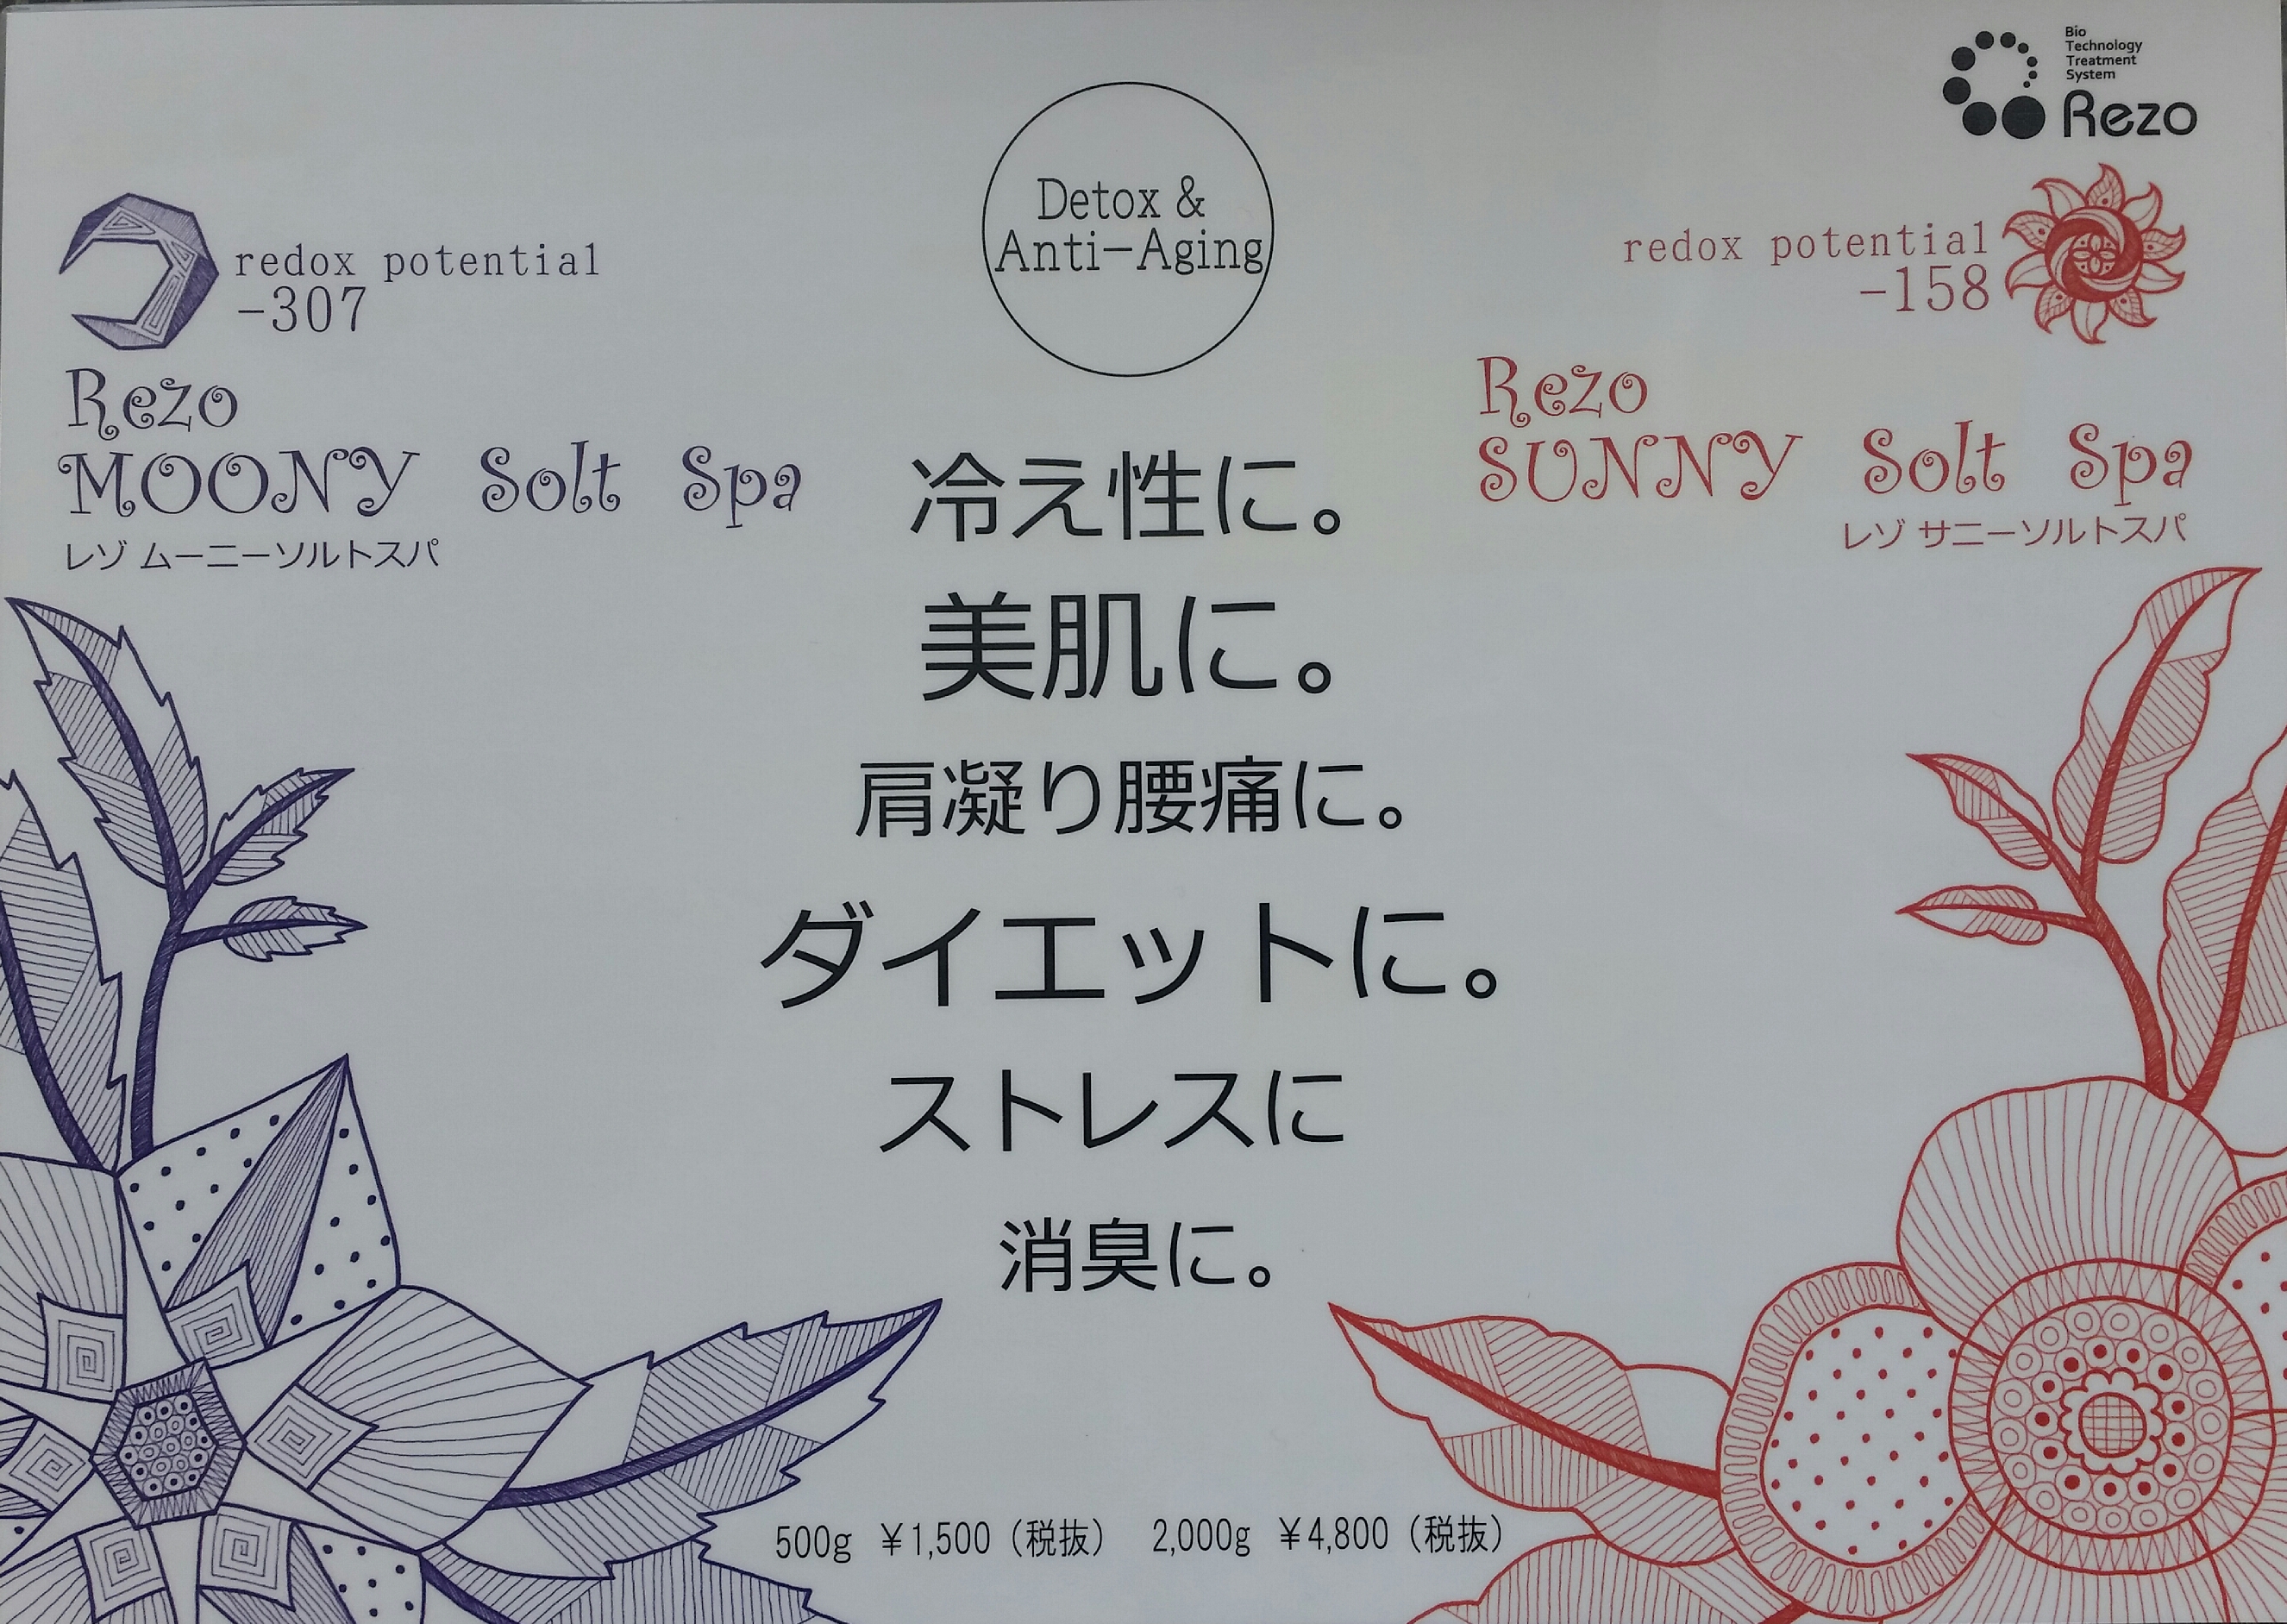 Bio
Technology
Treatment
System
Rezo
Detox &
Anti-Aging
redox potential
-307
Rezo
MOONY Solt Spa
レゾ ムーニーソルトスパ
redox potential
-158
Rezo
SUNNY Solt Spa
レゾ サニーソルトスパ
冷え性に。
美肌に。
肩凝り腰痛に。
ダイエットに。
ストレスに
消臭に。
500g ¥1,500（税抜） 2,000g ¥4,800（税抜）